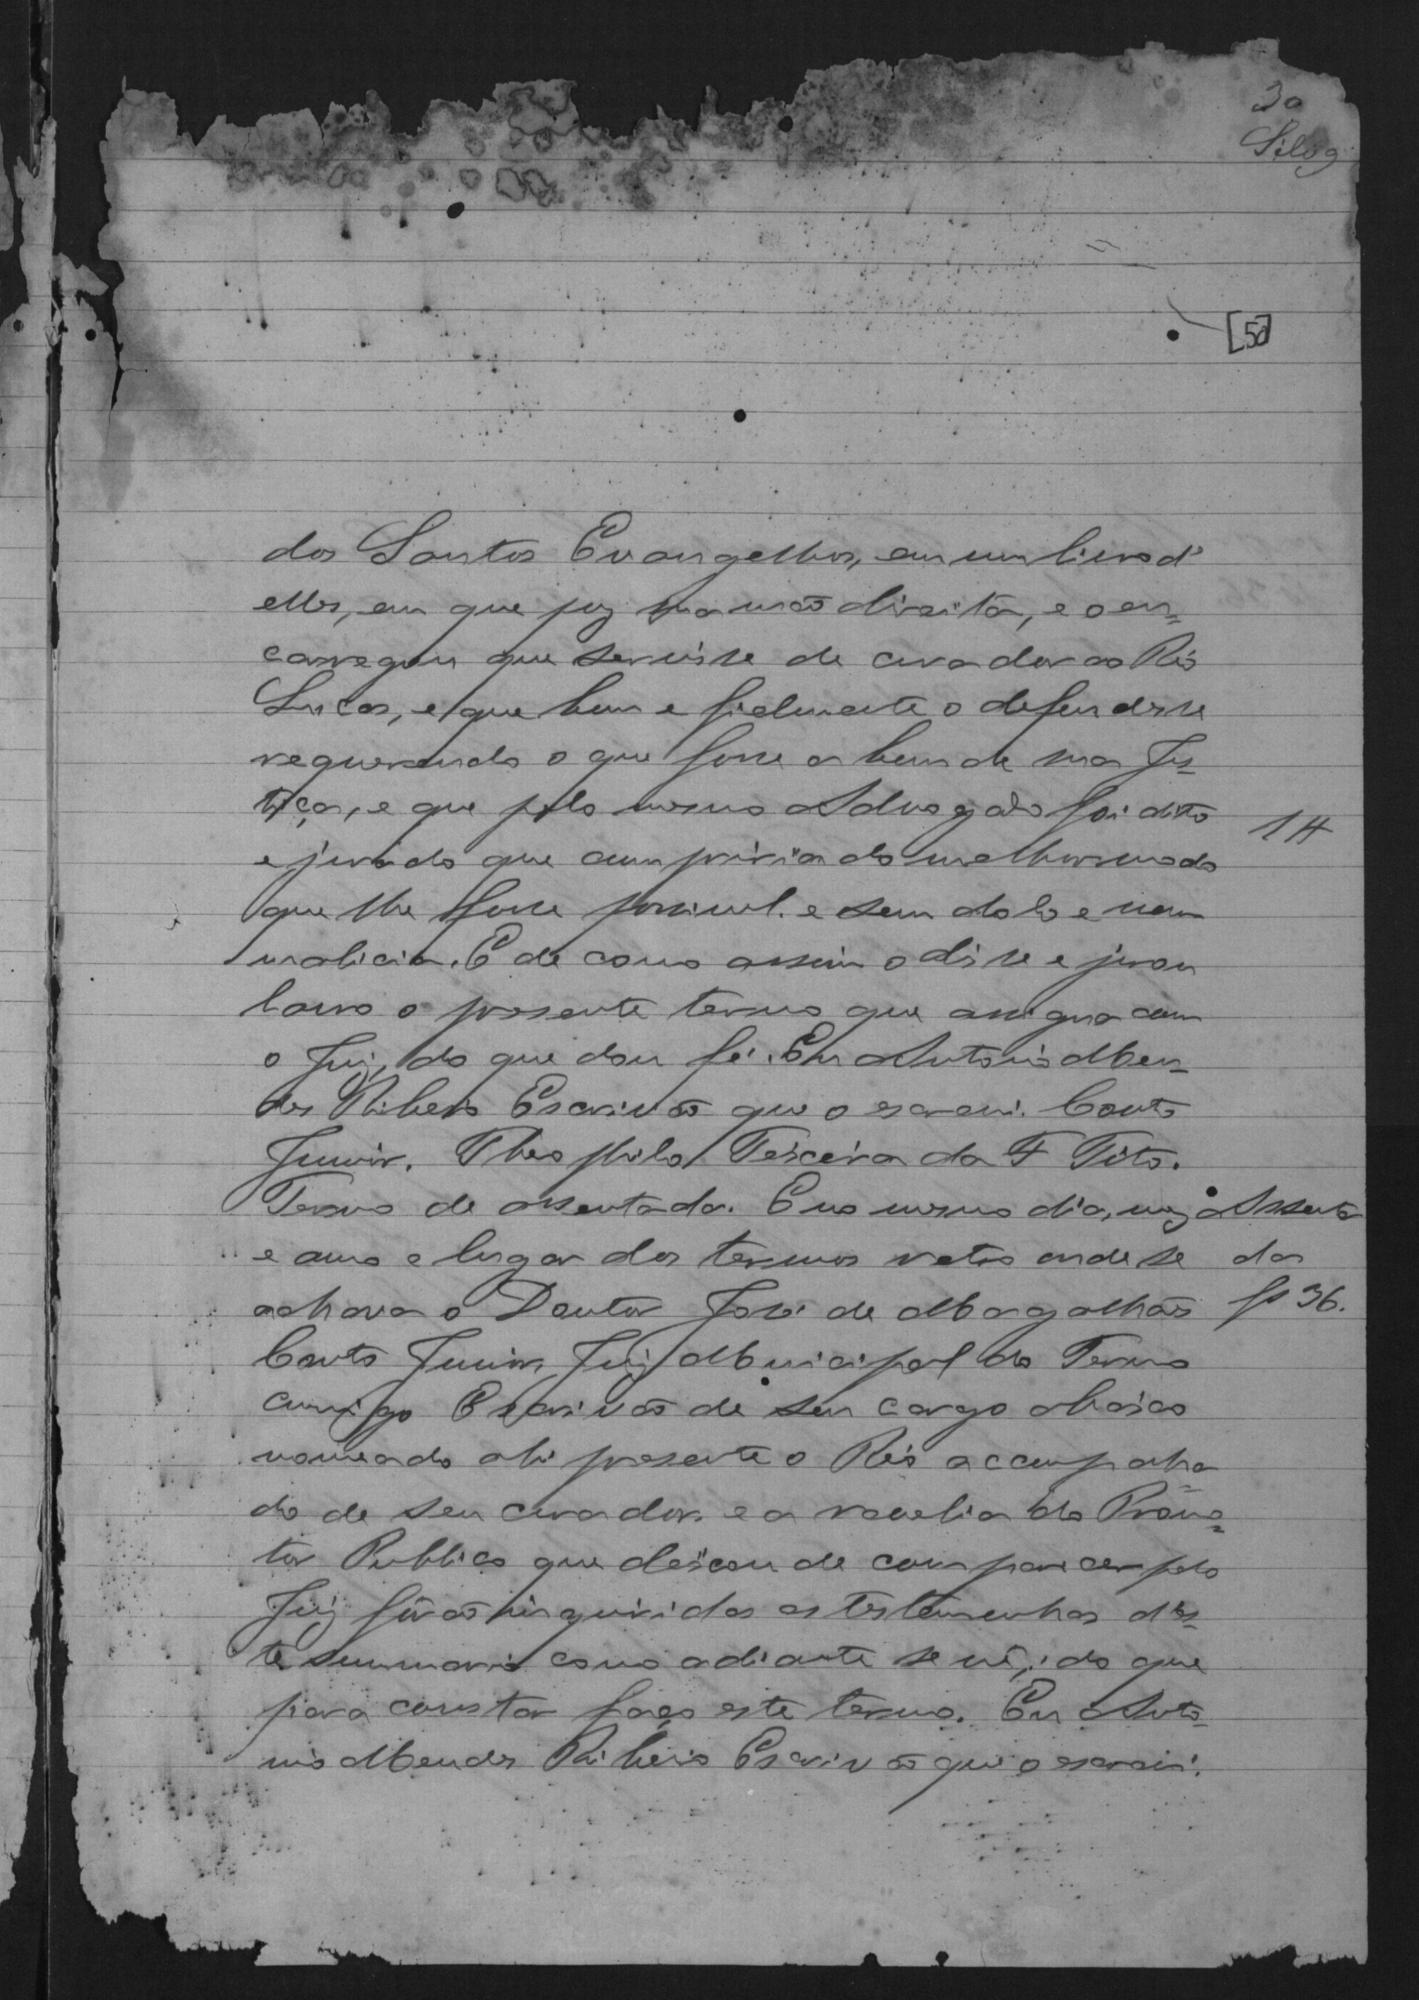 30
Silva
[50]
dos Santos Evangelhos, em um livro d'
elles, em que poz sua mão direita, e o en=
carregou que servisse de curador ao Réo
Lucas, e que bem e fielmente o defendesse
requerendo o que fosse a bem de sua Jus=
tiça, e que pelo mesmo Advogado foi dito
e jurado que cumpriria do melhor modo
que lhe fosse possivel. e sem dolo e nem
malicia. E de como assim o disse e jurou
lavro o presente termo que assigna com
o Juiz, do que dou fé. Eu Antonio Men=
des Ribeiro Escrivão que o escrevi. Couto
Junior. Theophilo Teixeira da F Tito.
Termo de assentada. E no mesmo dia, mez
e anno e lugar dos termos retro onde se
achava o Doutor José de Magalhães
Couto Junior, Juiz Municipal do Termo
comigo Escrivão de seu cargo abaixo
nomeado ahi presente o Réo acompanha
do de seu curador e a revelia do Promo=
tor Publico que deixou de comparecer pelo
Juiz forão inquiridas as testemunhas des=
te summario como adiante se vê, do que
para constar faço este termo. Eu Anto=
nio Mendes Ribeiro Escrivão que o escrevi.
Assenta
da
fs 36.